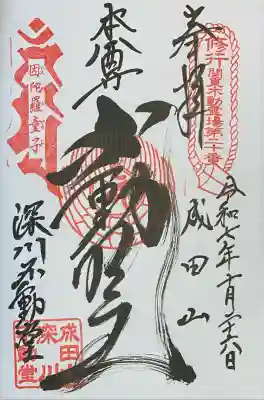 奉拝
修行
関東不動霊場第二十番
令和七年十月二十六日
成田山
本尊
不動明王
因陀羅童子
深川不動堂
成田山
深川
不動堂